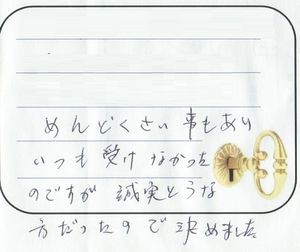 めんどくさい事もあり
いつも受けなかった
のですが誠実そうな
方だったので決めました